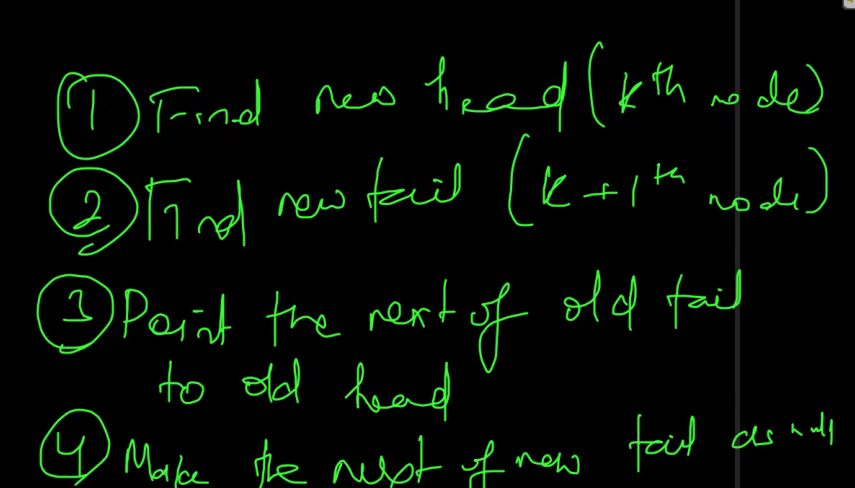 1 Find new head (kth node)
2 Find new tail (k+1th node)
3 Point the next of old tail
to old head
4 Make the next of new tail as null